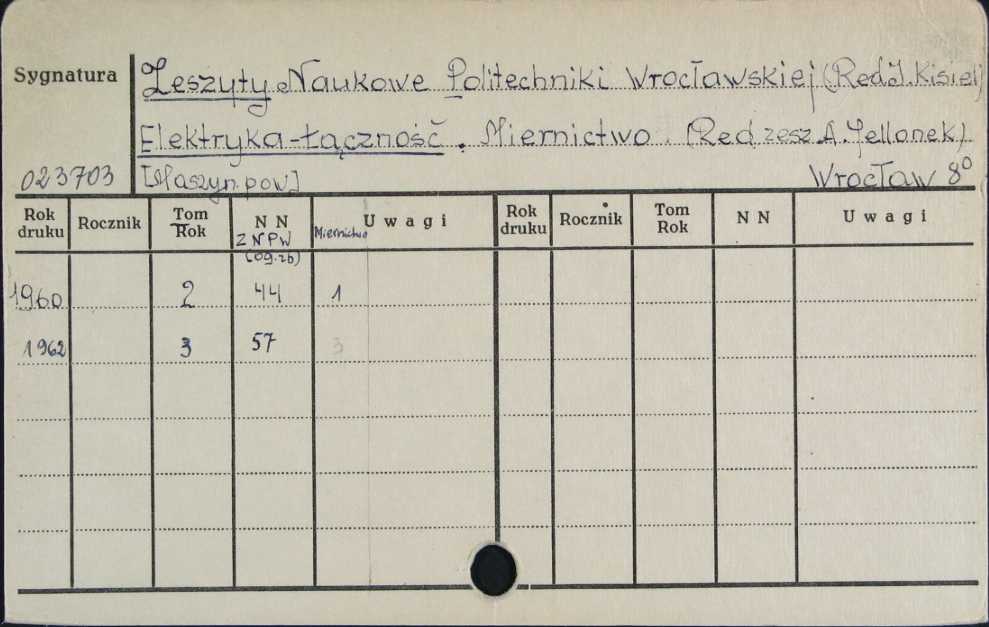 Sygnatura
Zeszyty Naukowe Politechniki Wrocławskiej (Red J. Kisiel)
Elektryka-Łączność. Miernictwo. (Red zesz. A. Jellonek)
023703 [Maszyn. pow] Wrocław 8°
Rok druku Rocznik Tom Rok N N ZNPW (og.zb) Miernictwo Uwagi Rok druku Rocznik Tom Rok N N Uwagi
1960 2 44 1
1962 3 57 3